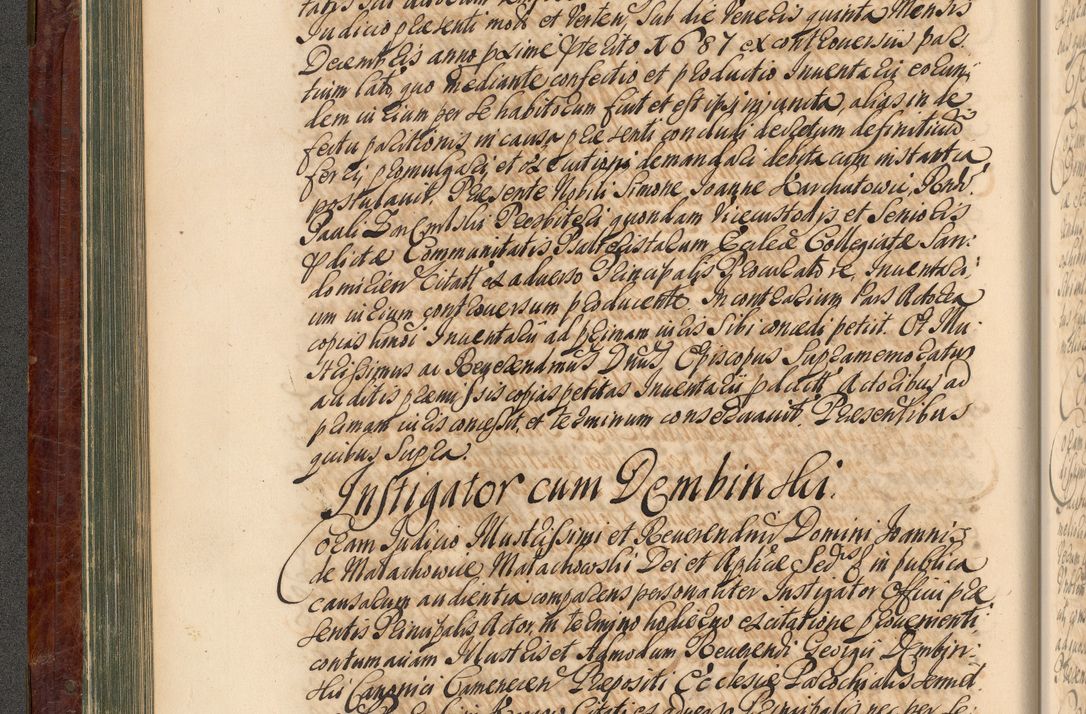 Judicio praesenti mota et verten. Sub die Veneris quinta Mensis
Decembris anno proxime pterito 1687 ex controversiis par
tium lato, quo mediante confectio et productio Inventarii eorun
dem in cium per se habitorum fuit et est ipsi injuncta, alias in de
fectu paritionis in causa praesenti concludi decretum definitivum
ferri, promulgari, et executioni demandari debita cum instantia
postulavit. Praesente Nobili Simone Joanne Karchutowic, Rndi
Pauli Presbiteri quondam Vicecustodis et Senioris
pdictae Communitatis Psalteristarum Ecclae Collegiatae San:
domirien Citati ex adverso Principalis Procuratore, Inventari
um in cium controversum producente. In contrarium Pars Actorea
copias hujus Inventarii ad primam juris Sibi concedi petiit. Et Illu:
strissimus ac Reverendmus Dnus Episcopus Supramemoratus
auditis praemissis copias petitas Inventarii pdicti Actoribus ad
primam juris concessit, et terminum conservavit. Praesentibus
quibus Supra.
Instigator cum Dembinski.
Coram Judicio Illustrissimi et Reverendmi Domini Joannis
de Małachowice Małachowski Dei et Aplicae Sedis G in publica
causarum audientia comparens personaliter Instigator Officii prae
sentis Principalis Actor, in termino hodierno ex citatione provenienti
contumaciam Illustris et Admodum Reverendi Georgii Dembin:
ski Canonici Camenecen Praepositi Ecclesiae Parochialis
Citati ex adverso Principalis nec per se